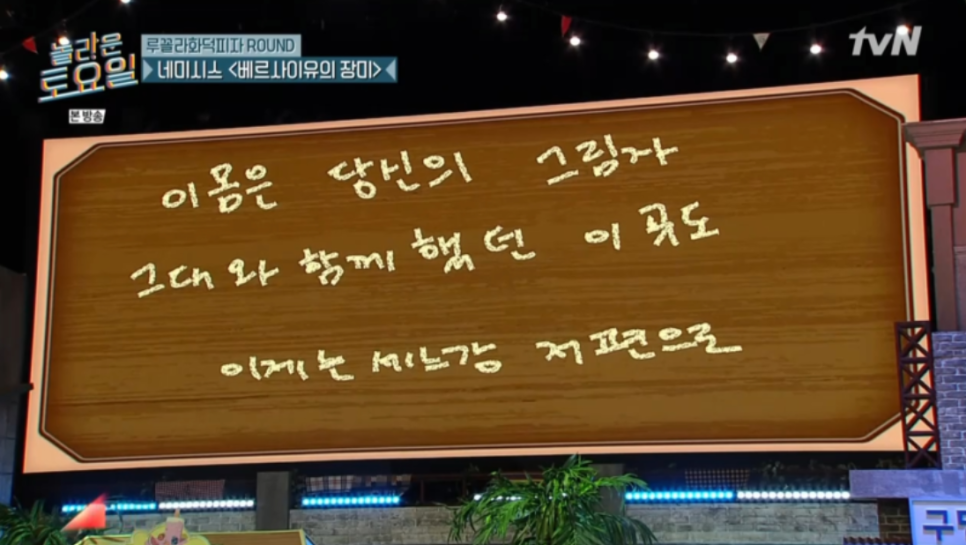 놀라운
토요일
본 방송
루꼴라화덕피자 ROUND
네미시스 <베르사이유의 장미>
tvN
이 몸은 당신의 그림자
그대와 함께 했던 이 곳도
이제는 세느강 저편으로